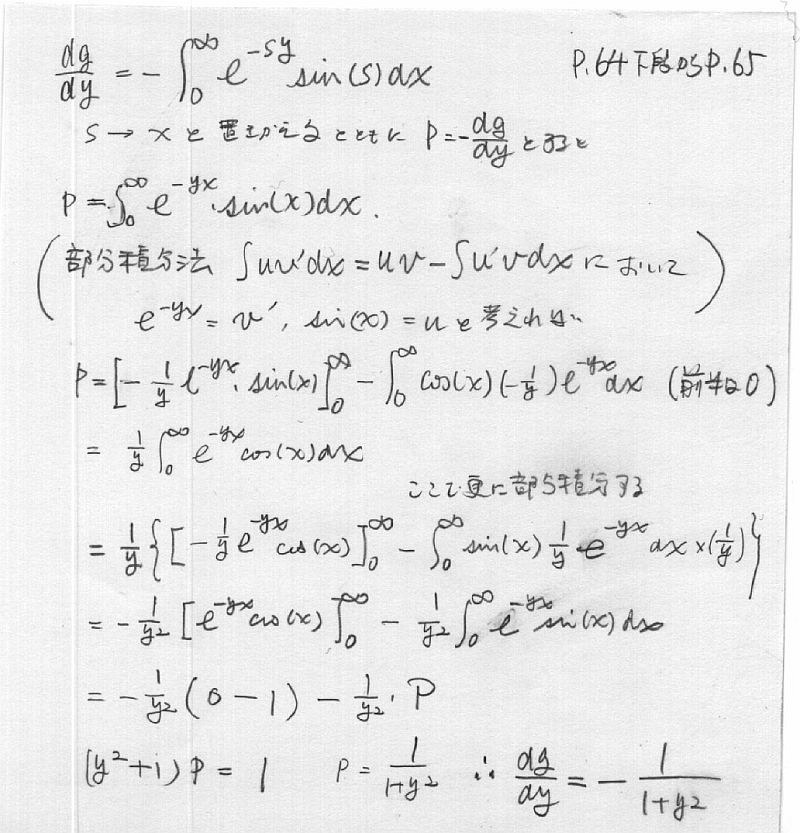 dg/dy = - ∫₀^∞ e^{-sy} sin(s) dx P.64下段からP.65
s → x と置きかえるとともに P = -dg/dy とすると
P = ∫₀^∞ e^{-yx} · sin(x) dx.
(部分積分法 ∫uv'dx = uv - ∫u'v dx において
e^{-yx} = v', sin(x) = u と考えれば)
P = [-1/y e^{-yx} · sin(x)]₀^∞ - ∫₀^∞ cos(x) (-1/y) e^{-yx} dx (前半は0)
= 1/y ∫₀^∞ e^{-yx} cos(x) dx
ここで更に部分積分する
= 1/y { [-1/y e^{-yx} cos(x)]₀^∞ - ∫₀^∞ sin(x) 1/y · e^{-yx} dx × (1/y) }
= -1/y² [e^{-yx} cos(x)]₀^∞ - 1/y² ∫₀^∞ e^{-yx} sin(x) dx
= -1/y² (0 - 1) - 1/y² · P
(y²+1) P = 1 P = 1/(1+y²) ∴ dg/dy = - 1/(1+y²)